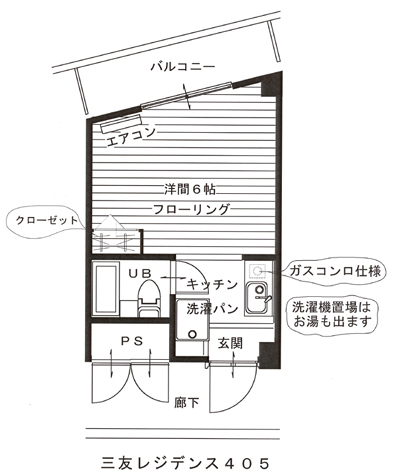 バルコニー
エアコン
洋間６帖
フローリング
クローゼット
ＵＢ
キッチン
ガスコンロ仕様
洗濯パン
洗濯機置場は
お湯も出ます
ＰＳ
玄関
廊下
三友レジデンス４０５